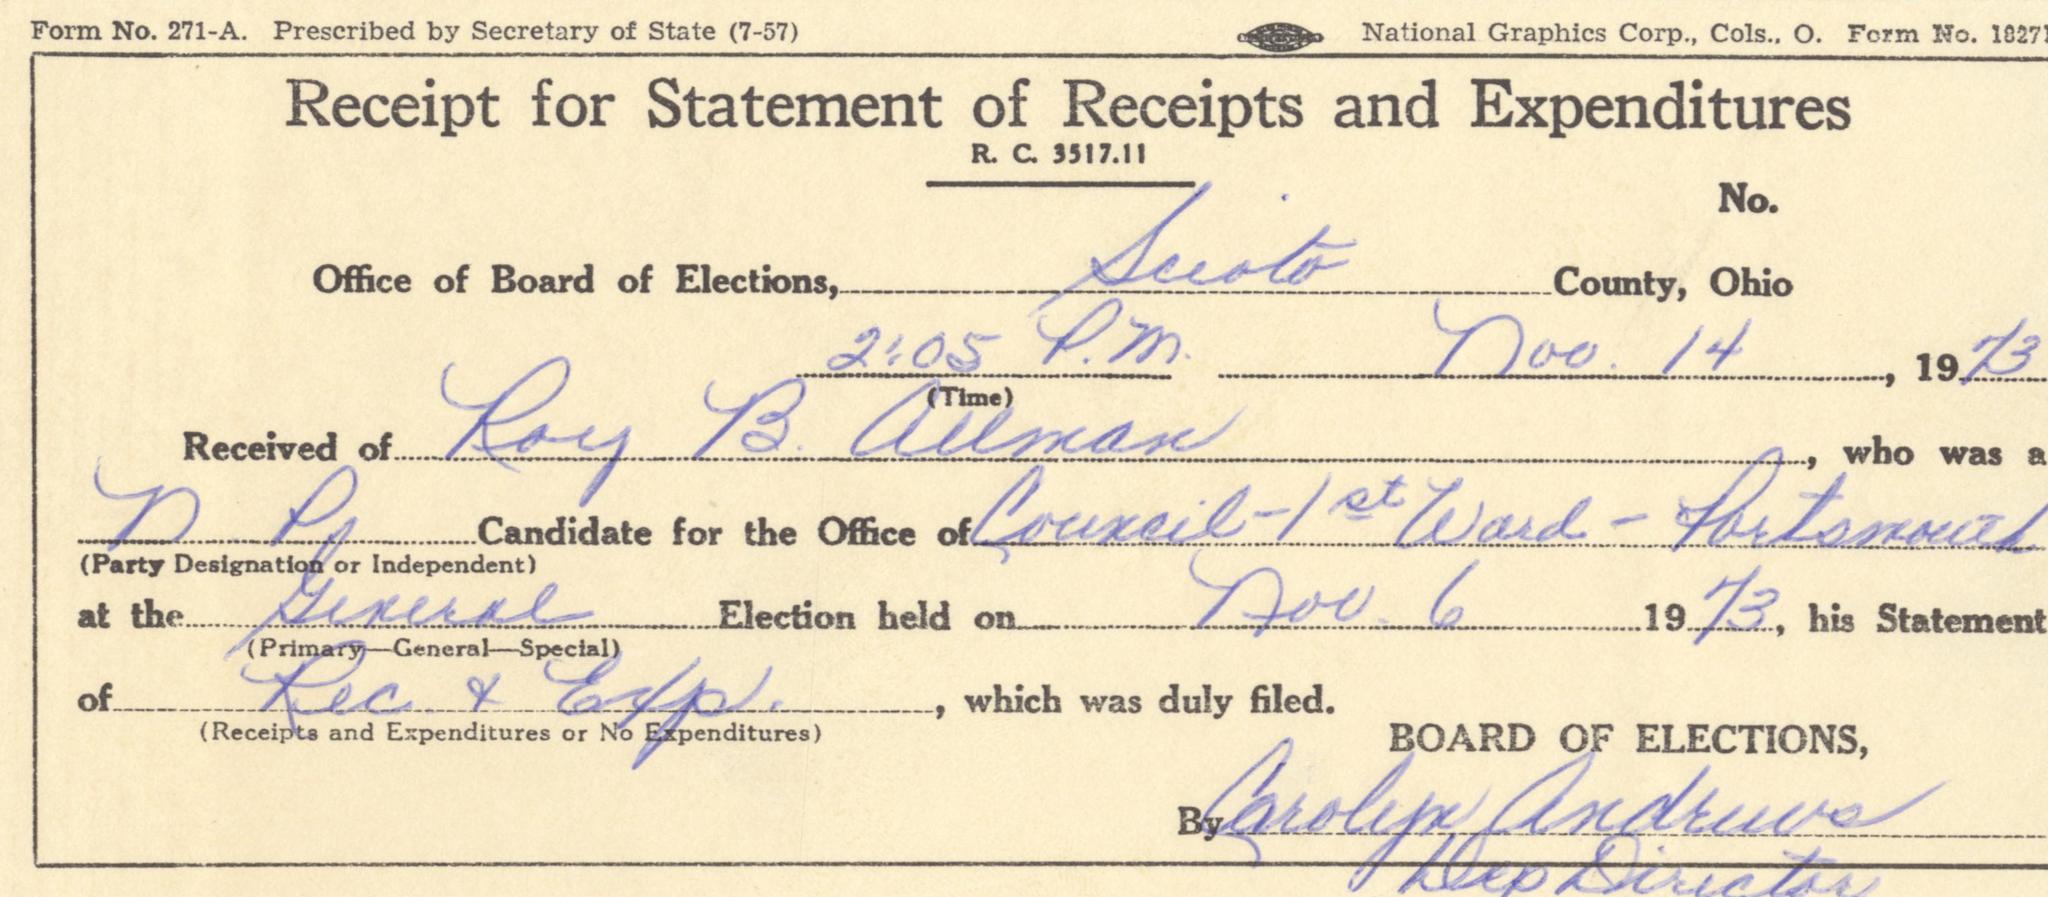 Form No. 271-A. Prescribed by Secretary of State (7-57) National Graphics Corp., Cols., O. Form No. 18271
Receipt for Statement of Receipts and Expenditures
R. C. 3517.11
No.
Office of Board of Elections, Scioto County, Ohio
2:05 P.M. Nov. 14, 1973
(Time)
Received of Roy B. Allman, who was a
N P Candidate for the Office of Council - 1st Ward - Portsmouth
(Party Designation or Independent)
at the General Election held on Nov. 6 1973, his Statement
(Primary—General—Special)
of Rec. & Exp., which was duly filed.
(Receipts and Expenditures or No Expenditures)
BOARD OF ELECTIONS,
By Carolyn Andrews
Dep Director